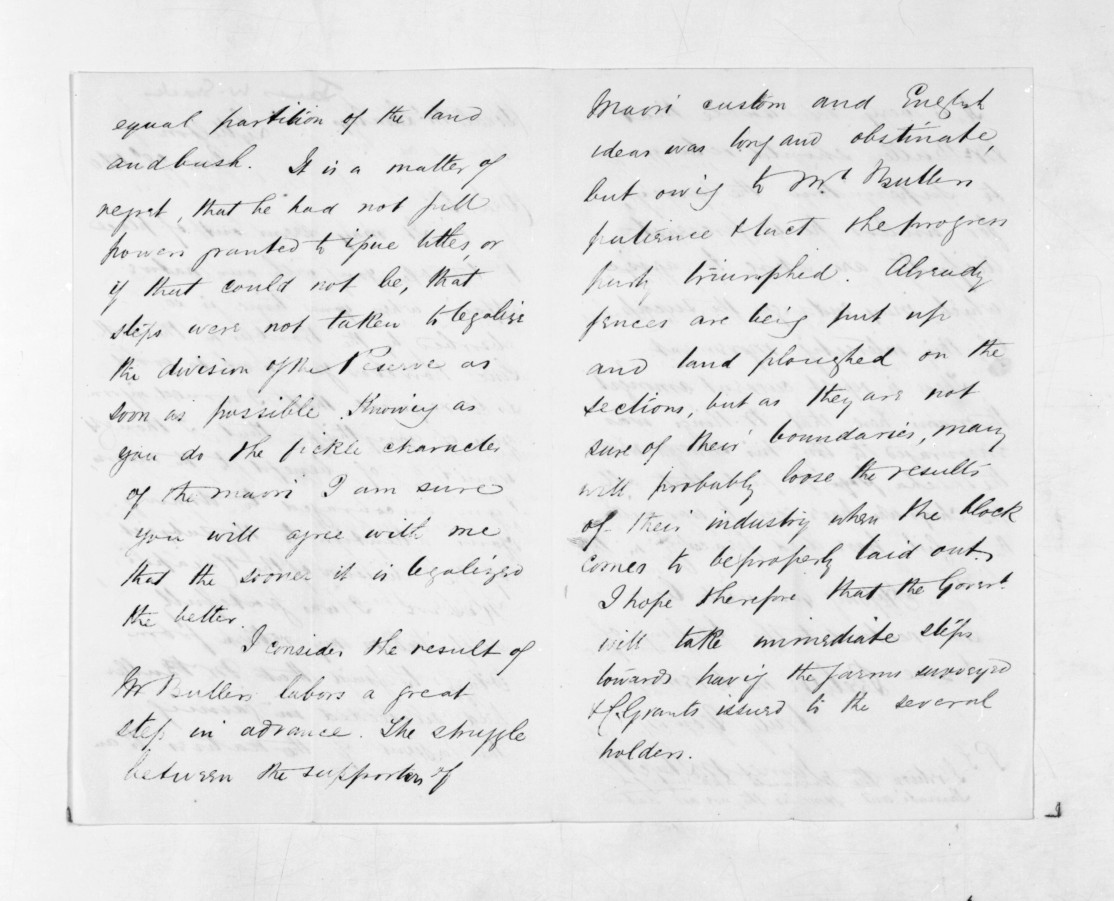 equal partition of the land
and bush. It is a matter of
regret, that he had not full
powers granted to issue titles, or
if that could not be, that
steps were not taken to legalize
the division of the Reserve as
soon as possible. Knowing as
you do the fickle character
of the maori I am sure
you will agree with me
that the sooner it is legalized
the better.
I consider the result of
Mr Bullers labors a great
step in advance. The struggle
between the supporters of
Maori custom and English
ideas was long and obstinate,
but owig to Mr. Bullers
patience & tact the progress
party triumphed. Already
fences are being put up
and land ploughed on the
sections, but as they are not
sure of their boundaries, many
will probably loose the results
of their industry when the block
comes to be properly laid out.
I hope therefore that the Govert.
will take immediate steps
towards havig the farms surveyed
& C. Grants issued to the several
holders.